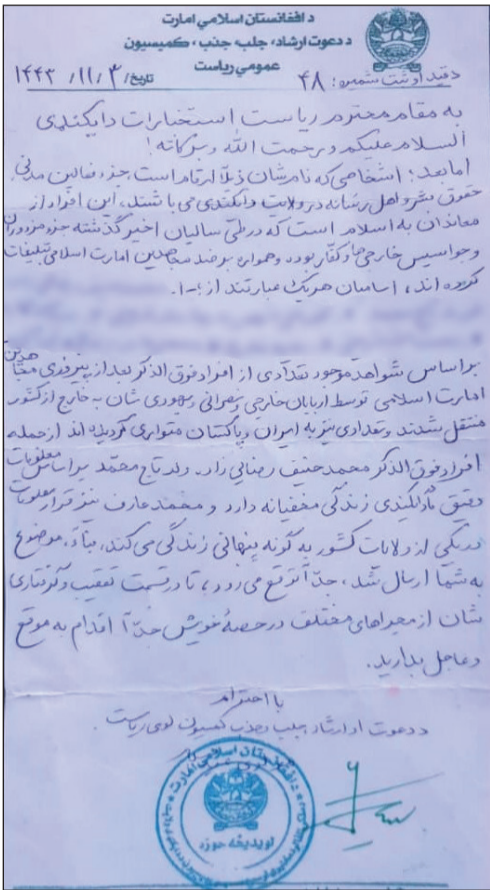 د افغانستان اسلامي امارت
د دعوت ارشاد، جلب، جذب، کمیسیون
عمومي ریاست
د قید او ثبت شمیره: ۴۸ تاریخ/ ۳/ ۱۱/ ۱۴۴۳
به مقام محترم ریاست استخبارات دایکندی
السلام علیکم و رحمت الله و برکاته!
اما بعد: اشخاصی که نام شان ذیلاً ارقام است جزء فعالین مدنی،
حقوق بشر و اهل رسانه در ولایت دایکندی می باشند، این افراد از
معاندان به اسلام است که در طی سالیان اخیر گذشته جزء مزدوران
و جواسیس خارجی ها و کفار بوده و همواره بر ضد مجاهدین امارت اسلامی تبلیغات
کرده اند، اسامیان هر یک عبارتند از: ۱-
براساس شواهد موجود تعدادی از افراد فوق الذکر بعد از پیروزی مجاهدین
امارت اسلامی توسط اربابان خارجی و نصرانی و یهودی شان به خارج از کشور
منتقل شدند و تعدادی نیز به ایران و پاکستان متواری گردیده اند از جمله
افراد فوق الذکر محمد حنیف رضائی زاد. ولد تاج محمد براساس معلومات
دقیق دایکندی زندگی مخفیانه دارد و محمد عارف نیز قرار معلومات
در یکی از ولایات کشور به گونه پنهانی زندگی می کند، بناءً، موضوع
به شما ارسال شد، جداً توقع می رود، تا در قسمت تعقیب و گرفتاری
شان از مجراهای مختلف در حصهٔ خویش جداً اقدام به موقع
و عاجل بدارید.
با احترام
د دعوت او ارشاد جلب و جذب کمیسیون لوی ریاست
د افغانستان اسلامی امارت
لویدیځه حوزه